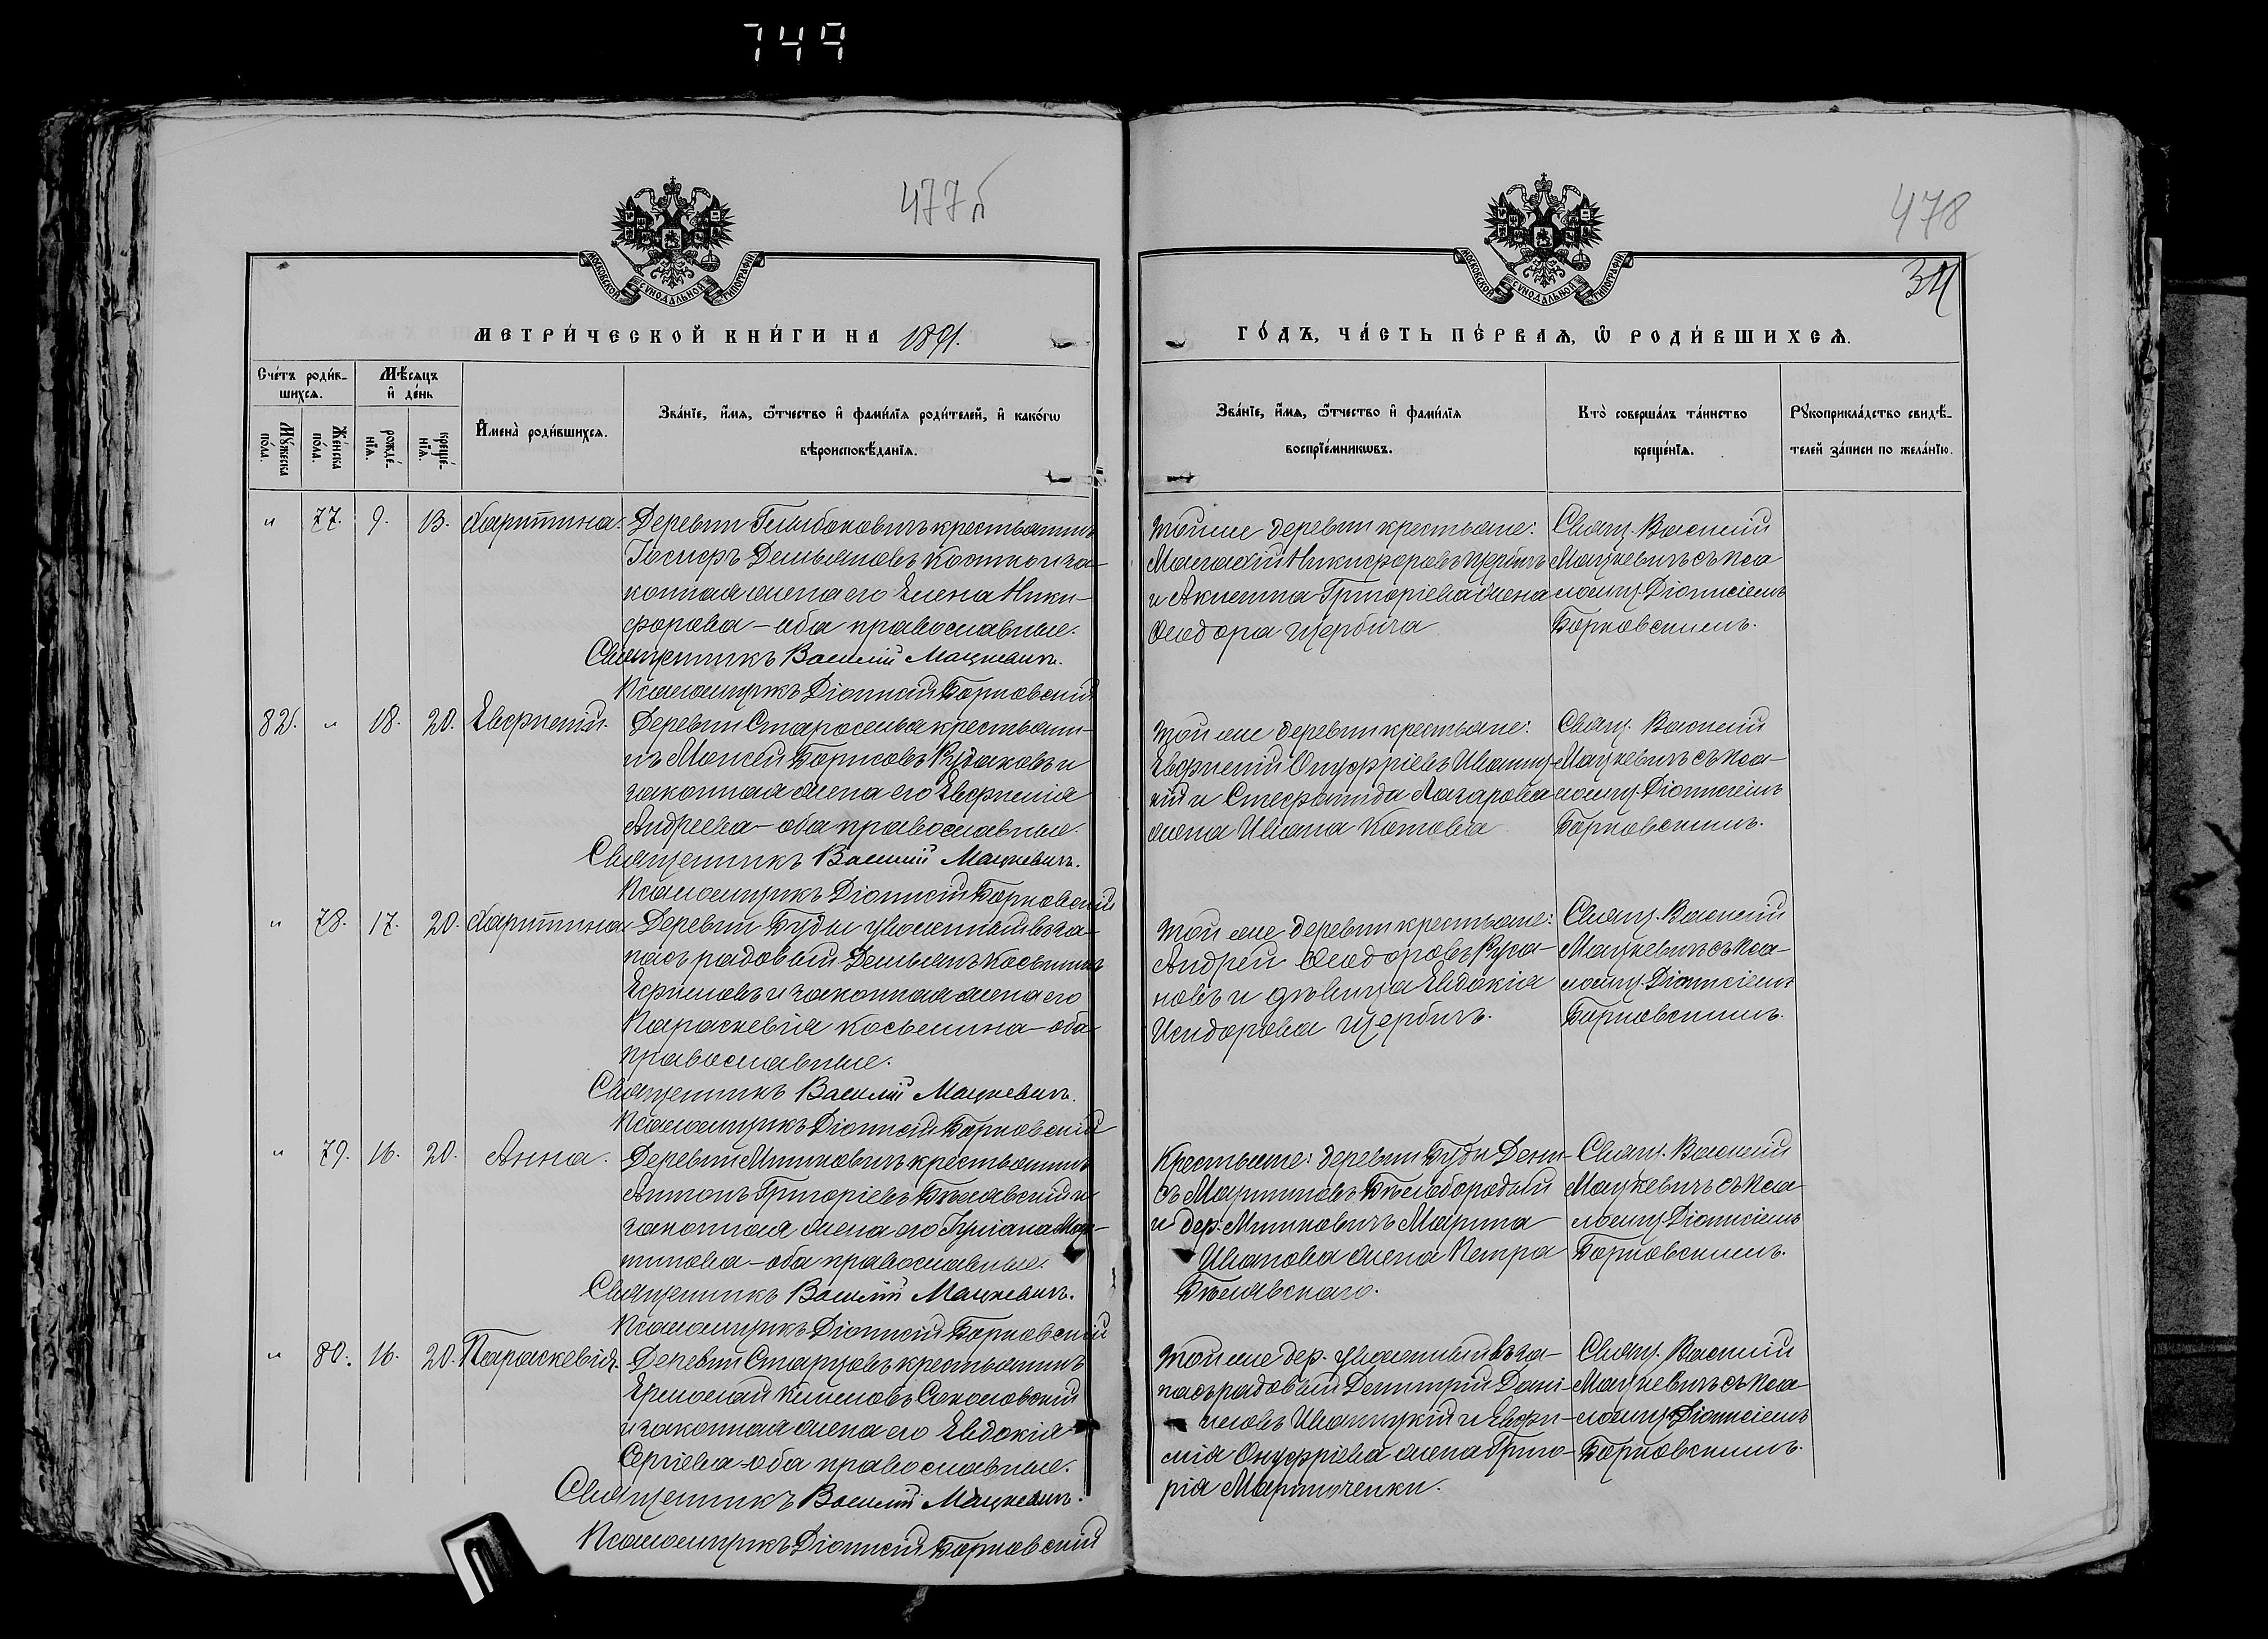 747
477 б
МОСКОВСКОЙ СУНОДАЛЬНОЙ ТИПОГРАФІИ
МЕТРИ́ЧЕСКОЙ КНИ́ГИ НА 1891.
Сче́тъ роди́в-
шихся.
Мѣ́сяцъ
и҆ де́нь
Му́жеска
по́ла.
Же́нска
по́ла.
рожде́-
нїѧ.
креще́-
нїѧ.
И҆мена̀ роди́вшихсѧ.
Зва́нїе, и҆́мѧ, ѻ҆́тчество и҆ фами́лїѧ роди́телей, и҆ како́гѡ
вѣроисповѣ́данїѧ.
" 77. 9. 13. Харитина. Деревни Глыбоковичъ крестьянинъ
Іосифъ Демьяновъ и за-
конная жена его Елена Ники-
форова – оба православные.
Священникъ Василій Мацкевичъ.
Псаломщикъ Діонисій Борковскій
82. " 18. 20. Евфимій. Деревни Староселья крестьяни-
нъ Моисей Борисовъ и
законная жена его Евфимія
Андреева – оба православные.
Священникъ Василій Мацкевичъ.
Псаломщикъ Діонисій Борковскій
" 78. 17. 20. Харитина Деревни Буды уволенный въ за-
пасъ рядовый Демьянъ Косьминъ
Ефимовъ и законная жена его
Параскевія Косьмина – оба
православные.
Священникъ Василій Мацкевичъ.
Псаломщикъ Діонисій Борковскій
" 79. 16. 20. Анна. Деревни крестьянинъ
Антонъ Григоріевъ Бѣлявскій и
законная жена его Іуліана Мар-
тинова – оба православные.
Священникъ Василій Мацкевичъ.
Псаломщикъ Діонисій Борковскій
" 80. 16. 20. Параскевія. Деревни Старцовъ крестьянинъ
Ермолай Климовъ Соколовскій
и законная жена его Евдокія
Сергіева – оба православные.
Священникъ Василій Мацкевичъ.
Псаломщикъ Діонисій Борковскій
478
34
МОСКОВСКОЙ СУНОДАЛЬНОЙ ТИПОГРАФІИ
ГО́ДЪ, ЧА́СТЬ ПЕ́РВАѦ, Ѡ҆ РОДИ́ВШИХСѦ.
Зва́нїе, и҆́мѧ, ѻ҆́тчество и҆ фами́лїѧ
воспрїе́мникѡвъ.
Кто̀ соверша́лъ та́инство
креще́нїѧ.
Рꙋкоприкла́дство свидѣ́-
телей за́писи по жела́нїю.
тойже деревни крестьяне:
Малахій Никифоровъ Щербичъ
и Акилина Григоріева жена
Ѳеодора Щербича
Свящ. Василій
Мацкевичъ съ пса-
ломщ. Діонисіемъ
Борковскимъ.
той же деревни крестьяне:
Евфимій Онуфріевъ Иваниц-
кій и Стефанида Лазарева
жена Ивана Котова
Свящ. Василій
Мацкевичъ съ пса-
ломщ. Діонисіемъ
Борковскимъ.
той же деревни крестьяне:
Андрей Ѳеодоровъ
и дѣвица Евдокія
Исидорова Щербичъ.
Свящ. Василій
Мацкевичъ съ пса-
ломщ. Діонисіемъ
Борковскимъ.
Крестьяне: деревни Буды Дени-
съ Мартиновъ Бѣлобородый
и дер. Марина
Иванова жена Петра
Бѣлявскаго.
Свящ. Василій
Мацкевичъ съ пса-
ломщ. Діонисіемъ
Борковскимъ.
той же дер. уволенный въ за-
пасъ рядовый Димитрій Дани-
иловъ Иваницкій и Евфи-
мія Онуфріева жена Григо-
рія Мартюченки.
Свящ. Василій
Мацкевичъ съ пса-
ломщ. Діонисіемъ
Борковскимъ.